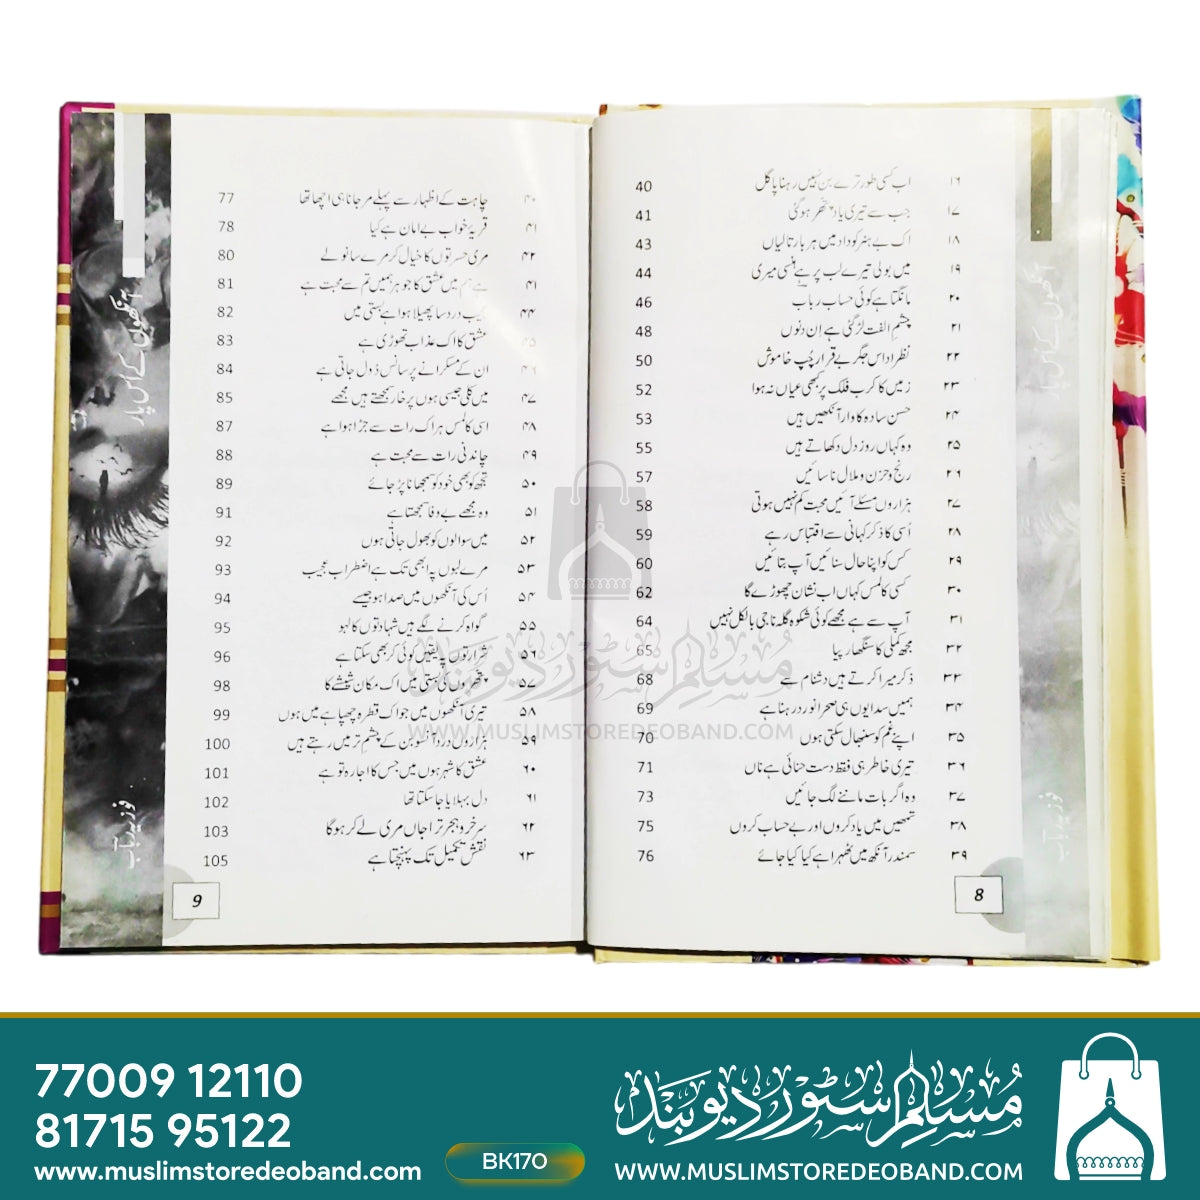 ۱۶ اب کسی طور ترے بن نہیں رہنا پاگل 40
۱۷ جب سے تیری یاد پتھر ہوگئی 41
۱۸ اک بے ہنر کو داد میں ہر بار تالیاں 43
۱۹ میں بولی تیرے لب پر ہے ہنسی میری 44
۲۰ مانگتا ہے کوئی حساب رباب 46
۲۱ چشمِ الفت لڑ گئی ہے اِن دنوں 48
۲۲ نظر اداس جگر بے قرار چپ خاموش 50
۲۳ زمیں کا کرب فلک پر کبھی عیاں نہ ہوا 52
۲۴ حسن سادہ کا وار آنکھیں ہیں 53
۲۵ وہ کہاں روز دل دکھاتے ہیں 55
۲۶ رنج و حزن و ملال نا سائیں 57
۲۷ ہزاروں مسئلے آئیں محبت کم نہیں ہوتی 58
۲۸ اُسی کا ذکر کہانی سے اقتباس رہے 59
۲۹ کس کو اپنا حال سنائیں آپ بتائیں 60
۳۰ کسی کا لمس کہاں اب نشان چھوڑے گا 62
۳۱ آپ سے ہے مجھے کوئی شکوہ گلہ نا جی بالکل نہیں 64
۳۲ مجھ کملی کا سنگھار پیا 65
۳۳ ذکر میرا کرتے ہیں دشنام سے 68
۳۴ ہمیں سدا یوں ہی صحرا نورد رہنا ہے 69
۳۵ اپنے غم کو سنبھال سکتی ہوں 70
۳۶ تیری خاطر ہی فقط دست حنائی ہے ناں 71
۳۷ وہ اگر بات ماننے لگ جائیں 73
۳۸ تمھیں میں یاد کروں اور بے حساب کروں 75
۳۹ سمندر آنکھ میں ٹھہرا ہے کیا کیا جائے 76
8
۴۰ چاہت کے اظہار سے پہلے مر جانا ہی اچھا تھا 77
۴۱ قریۂ خواب بے امان ہے کیا 78
۴۲ مری حسرتوں کا خیال کر مرے سانولے 80
۴۱ ہے ہم میں عشق کا جوہر ہمیں تم سے محبت ہے 81
۴۴ عجیب درد سا پھیلا ہوا ہے بستی میں 82
۴۵ عشق کا اک عذاب تھوڑی ہے 83
۴۶ ان کے مسکرانے پر سانس ڈول جاتی ہے 84
۴۷ میں کلی جیسی ہوں پر خار سمجھتے ہیں مجھے 85
۴۸ اسی کا لمس ہر اک رات سے جڑا ہوا ہے 87
۴۹ چاندنی رات سے محبت ہے 88
۵۰ تجھ کو بھی خود کو سمجھانا پڑ جائے 89
۵۱ وہ مجھے بے وفا سمجھتا ہے 91
۵۲ میں سوالوں کو بھول جاتی ہوں 92
۵۳ مرے لبوں پہ ابھی تک ہے اضطراب عجیب 93
۵۴ اُس کی آنکھوں میں صدا ہو جیسے 94
۵۵ گواہ کرنے لگے ہیں شہادتوں کا لہو 95
۵۶ شرارتوں پہ یقیں کوئی کر بھی سکتا ہے 96
۵۷ پتھروں کی بستی میں اک مکان شیشے کا 98
۵۸ تیری آنکھوں میں جو اک قطرہ چھپا ہے میں ہوں 99
۵۹ ہزاروں درد آنسو بن کے چشمِ تر میں رہتے ہیں 100
۶۰ عشق کا شہروں میں جس کا اجارہ تو ہے 101
۶۱ دل بہلایا جا سکتا تھا 102
۶۲ سرخرو ہجر ترا جاں مری لے کر ہوگا 103
۶۳ نقش تکمیل تک پہنچتا ہے 105
9
آنکھوں کے اُس پار
فوزیہ رباب
آنکھوں کے اُس پار
فوزیہ رباب
مسلم سٹور دیوبند
WWW.MUSLIMSTOREDEOBAND.COM
77009 12110
81715 95122
www.muslimstoredeoband.com
BK170
مسلم سٹور دیوبند
WWW.MUSLIMSTOREDEOBAND.COM